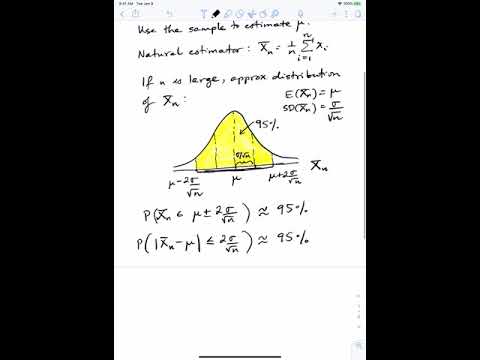 9:41 AM Tue Jan 8
Use the sample to estimate μ.
Natural estimator: X̄ₙ = 1/n Σ_{i=1}^{n} Xᵢ
If n is large, approx distribution
of X̄ₙ:
E(X̄ₙ) = μ
SD(X̄ₙ) = σ/√n
95%
σ/√n
X̄ₙ
μ-2σ/√n μ μ+2σ/√n
P(X̄ₙ ∈ μ ± 2σ/√n) ≈ 95%
P(|X̄ₙ - μ| ≤ 2σ/√n) ≈ 95%